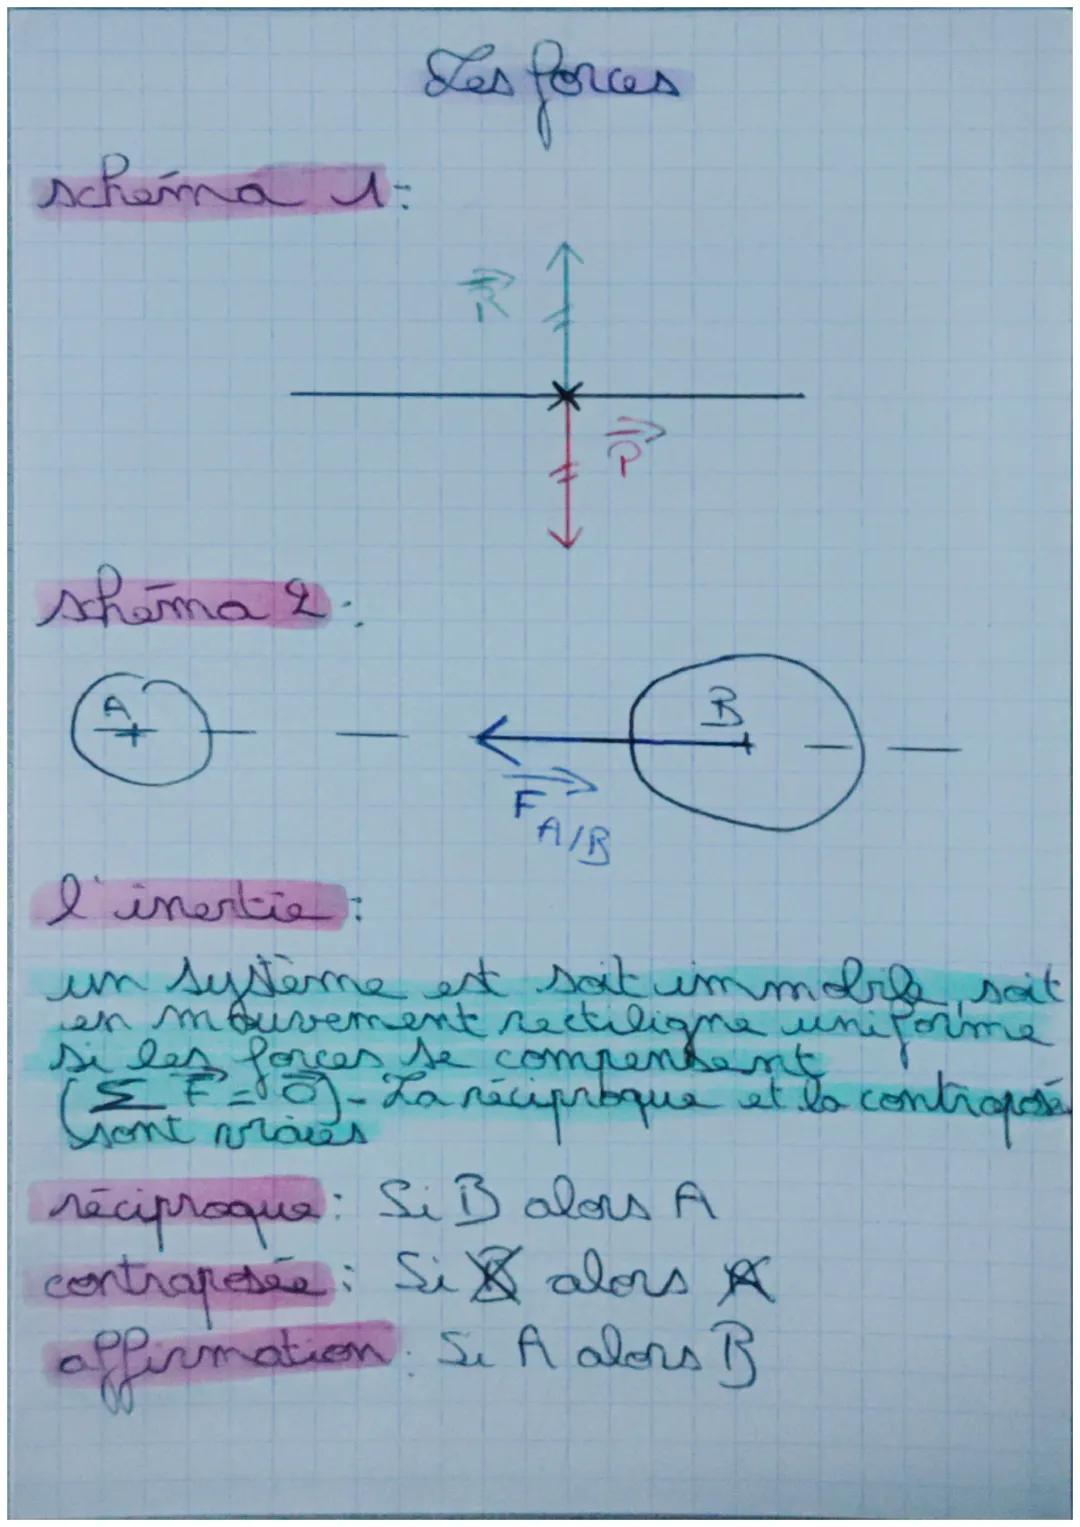 Les forces
schéma 1:
R
P
shéma 2:
A
B
F A/B
l'inertie:
un système est soit immobile, soit
en mouvement rectiligne uniforme
si les forces se compensent
(∑ F = 0) - La réciproque et la contraposé
sont vraies
réciproque: Si B alors A
contraposée: Si B alors A
affirmation: Si A alors B